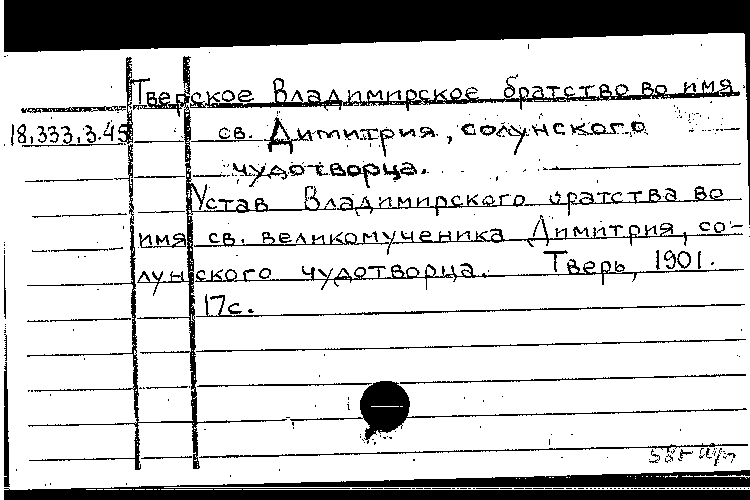 Тверское Владимирское братство во имя
18.333.3.45 св. Димитрия, солунского
чудотворца.
Устав Владимирского братства во
имя св. великомученика Димитрия, со-
лунского чудотворца. Тверь, 1901.
17с.